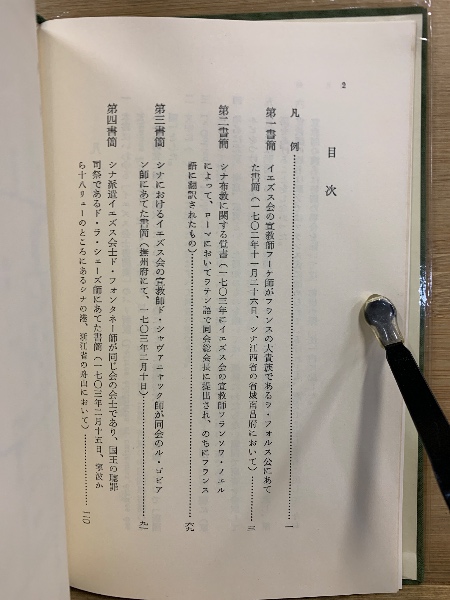 2
目次
凡例……一
第一書簡 イエズス会の宣教師フーケ師がフランスの大貴族であるラ・フォルス公にあて
た書簡(一七〇二年十一月二十六日、シナ江西省の省城南昌府において)……三
第二書簡 シナ布教に関する覚書(一七〇三年にイエズス会の宣教師フランソワ・ノエル
によって、ローマにおいてラテン語で同会総会長に提出され、のちにフランス
語に翻訳されたもの)……六九
第三書簡 シナにおけるイエズス会の宣教師ド・シャヴァニャック師が同会のル・ゴビア
ン師にあてた書簡(撫州府にて、一七〇三年二月十日)……九一
第四書簡 シナ派遣イエズス会士ド・フォンタネー師が同じ会の会士であり、国王の聴罪
司祭であるド・ラ・シェーズ師にあてた書簡(一七〇三年二月十五日、寧波か
ら十八リューのところにあるシナの港、浙江省の舟山において)……